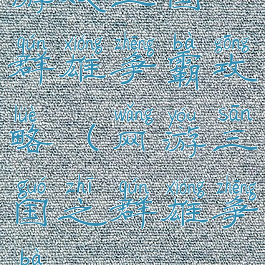 qún xióng zhēng bà gōng
群雄争霸攻
lüè wǎng yóu sān
略（网游三
guó zhī qún xióng zhēng
国之群雄争
bà